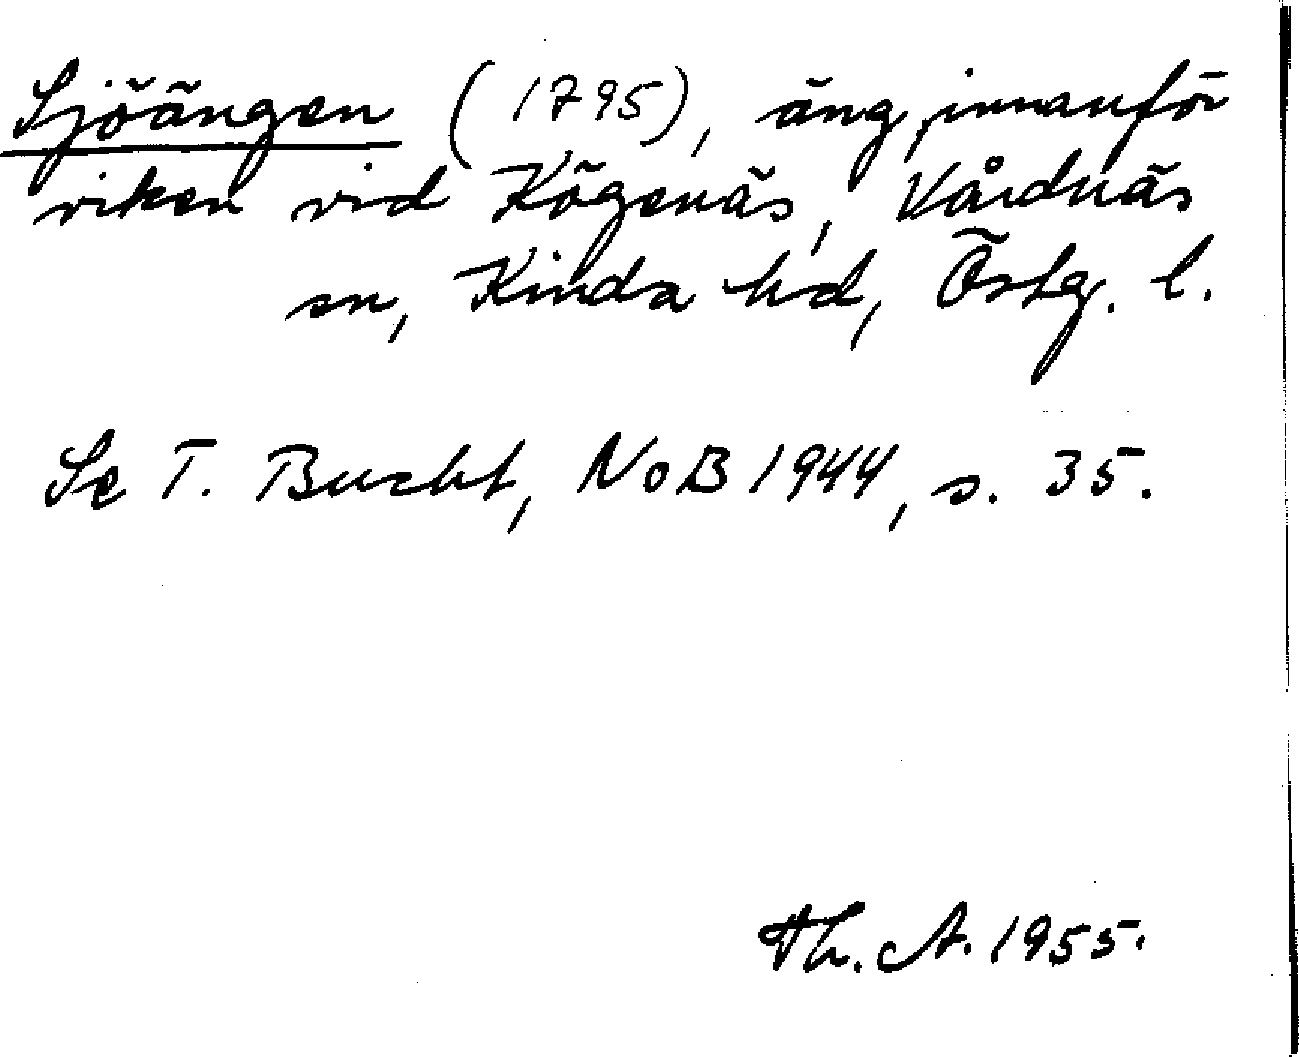 Sjöängen (1795), äng innanför
viken vid Kögenäs, Vårdnäs
sn, Kinda hd, Östg. l.
Se T. Bucht, NoB 1944, s. 35.
Th. A. 1955.